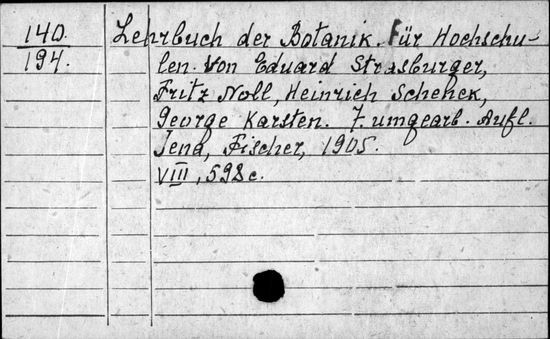 140.
194.
Lehrbuch der Botanik. Für Hochschu-
len. Von Eduard Strasburger,
Fritz Noll, Heinrich Schenck,
George Karsten. 7. umgearb. Aufl.
Jena, Fischer, 1905.
VIII, 598 c.